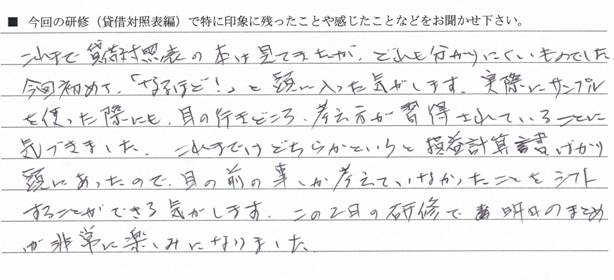 ■ 今回の研修（貸借対照表編）で特に印象に残ったことや感じたことなどをお聞かせ下さい。
これまで貸借対照表の本は見てきたが、どれも分かりにくいものでした。
今回初めて、「なるほど！」と頭に入った気がします。実際にサンプル
を使った際にも、目の行きどころ、考え方が習得されていることに
気づきました。これまではどちらかというと損益計算書ばかり
頭にあったので、目の前の事しか考えていなかったことをシフト
することができる気がします。この2日の研修で明日のまとめ
が非常に楽しみになりました。